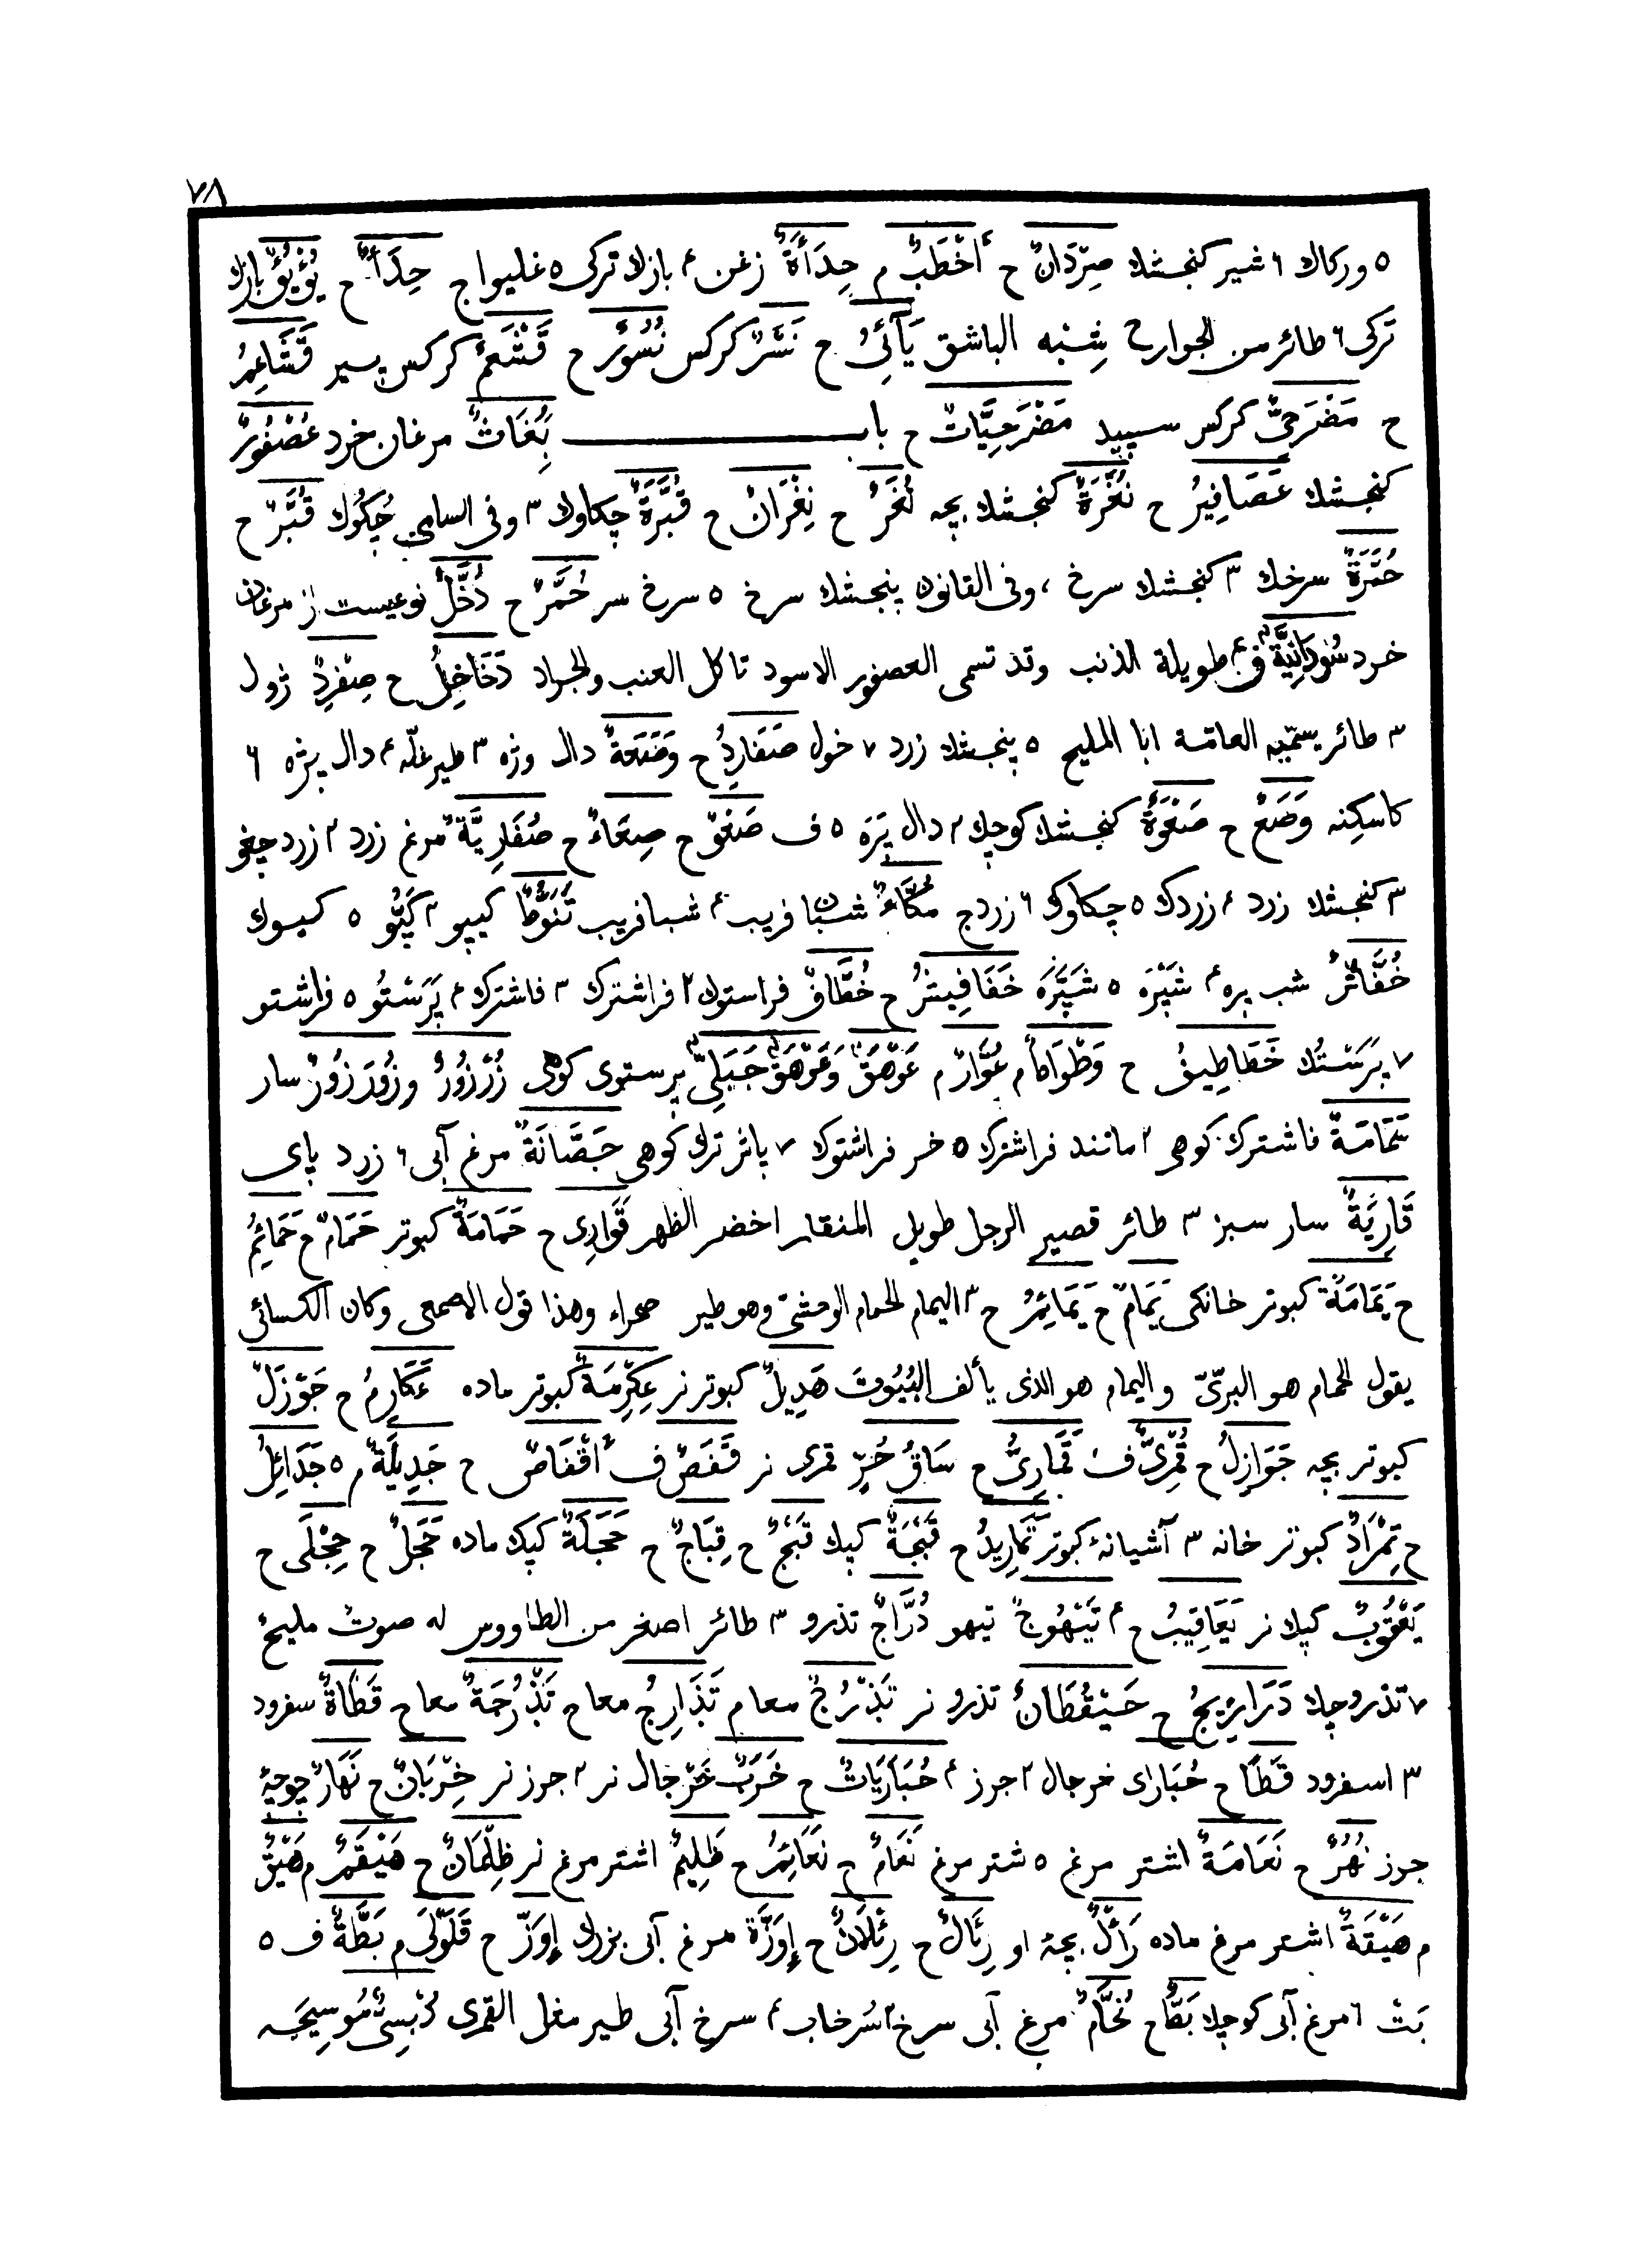 ٧٨
٥ ورکاك ٦ شیر کنجشك صِرْدَانٌ ح أَخْطَبُ م حِدَأَةٌ زغن ٤ بازك ترکی ٥ غلیواج حِدَأٌ ح یُؤْیُؤٌ بازك
ترکی ٦ طائر من الجوارح شِبْه الباشق یَآئِیُ ح نَسْرٌ کرکس نُسُوْرٌ ح قَشْعَمٌ کرکس پیر قَشَاعِمُ
ح مَضْرَحِیٌّ کرکس سپید مَضْرَحِیَّاتٌ ح باب بِغَاثٌ مرغان خرد عُصْفُورٌ
کنجشك عَصَافِیرُ ح نُغَرَةٌ کنجشك بچه نُغَرٌ ح نِغْرَانٌ ح قُبَّرَةٌ چکاوك ٣ وفی السامی چکوك قُبَّرٌ ح
حُمَّرَةٌ سرخك ٣ کنجشك سرخ ، وفی القانون پنجشك سرخ ٥ سرخ سر حُمَّرٌ ح دُخَّلٌ نوعیست از مرغان
خرد سُودَانِیَّةٌ ف ٤ طویلة الذنب وقد تسمی العصفور الاسود تاکل العنب والجراد دَخَاخِلُ ح صِفْرِدٌ ژول
٣ طائر یسمّیه العامّة ابا الملیح ٥ پنجشك زرد ٧ خول صَفَارِدُ ح وَصَعَةٌ دال وژه ٣ طیر غلّه ٤ دال بژه ٦
کاسکینه وَصَعٌ ح صَعْوَةٌ کنجشك کوچك ٢ دال بَرَه ٥ ف صَعْوٌ ح صِعَاءٌ ح صُفَارِیَّةٌ مرغ زرد ٢ زرد چغو
٣ کنجشك زرد ٤ زردك ٥ چکاوك ٦ زردج مُکَّاءٌ شبان فریب ٤ شبافریب تَنَوُّطٌ کیپو ٢ کَپُّو ٥ کیوك
خُفَّاشٌ شب پره ٤ شَپَّرَه ٥ شَبْپَرَه خَفَافِیشُ ح خُطَّافٌ فراستوك ٢ فراشترك ٣ فاشترك ٤ پَرَسْتُو ٥ فراشتو
٧ پرَسْتُك خَطَاطِیفُ ح وَطْوَاطٌ م عُوَّارٌ م عَوْهَقٌ وَعَوْهَقٌ جَبَلِیٌّ پرستوی کوهی زُرْزُورٌ و زُورَزُورٌ سار
سَمَامَةٌ فاشترك کوهی ٢ مانند فراشترك ٥ خر فراشتوك ٧ پاش ترك کوهی حَصَّانَةٌ مرغ آبی ٦ زرد پای
قَارِیَةٌ سار سبز ٣ طائر قصیر الرجل طویل المنقار اخضر الظهر قَوَارِی ح حَمَامَةٌ کبوتر حَمَامٌ ح حَمَائِمُ
ح یَمَامَةٌ کبوتر خانکی یَمَامٌ ح یَمَائِمُ ح ٣ الیمام الحمام الوحشی وهو طیر صحراء وهذا قول الاصمعی وکان الکسائی
یقول الحمام هو البرّیّ والیمام هو الذی یألف البُیُوتَ هَدِیلٌ کبوتر نر عِکْرِمَةٌ کبوتر ماده عَکَارِمُ ح جَوْزَلٌ
کبوتر بچه جَوَازِلُ ح قُمْرِیٌّ ف قَمَارِیُّ ح سَاقُ حُرٍّ قمری نر قَفَصٌ ف أَقْفَاصٌ ح جَدِیلَةٌ م ٥ جَدَائِلُ
ح تِمْرَادٌ کبوتر خانه ٣ آشیانهٔ کبوتر تَمَارِیدُ ح قَبْجَةٌ کبك قَبْجٌ ح قِبَاجٌ ح حَجَلَةٌ کبك ماده حَجَلٌ ح حِجْلَی ح
یَعْقُوبٌ کبك نر یَعَاقِیبُ ح ٤ تَیْهُوجٌ تیهو دُرَّاجٌ تذرو ٣ طائر اصغر من الطاووس له صوت ملیحٌ
٧ تذروچك دَرَارِیجُ ح حَیْقُطَانٌ تذرو نر تَذْرُجٌ معا م تَذَارِجُ معا ح تَذْرُجَةٌ معا ح قَطَاةٌ سفرود
٣ اسفرود قَطًا ح حُبَارَی خرجال ٢ جرز ٤ حُبَارَیَاتٌ ح خَرَبٌ خرجال نر ٢ جرز نر خِرْبَانٌ ح نَهَارٌ جوجهٔ
جرز نُهُرٌ ح نَعَامَةٌ اشتر مرغ ٥ شتر مرغ نَعَامٌ ح نَعَائِمُ ح ظَلِیمٌ اشتر مرغ نر ظِلْمَانٌ ح هَیْقَمٌ م هَیْقٌ
م هَیْقَةٌ اشتر مرغ ماده رَأْلٌ بچهٔ او رِئَالٌ ح رِئْلَانٌ ح إِوَزَّةٌ مرغ آبی بزرك إِوَزٌّ ح قَلَوْلَی م بَطَّةٌ ف ٥
بَتْ ٦ مرغ آبی کوچك بَطٌّ ح نُحَّامٌ مرغ آبی سرخ ٢ سُرخاب ٤ سرخ آبی طیر مثل القمری دُبْسِیٌّ مُوسِیچه